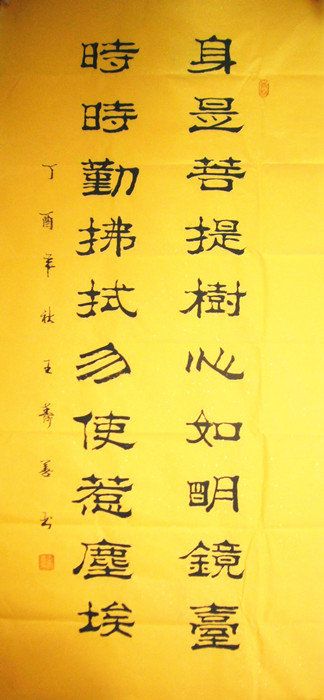 身是菩提樹心如明鏡臺
時時勤拂拭勿使惹塵埃
丁酉年秋王壽善书